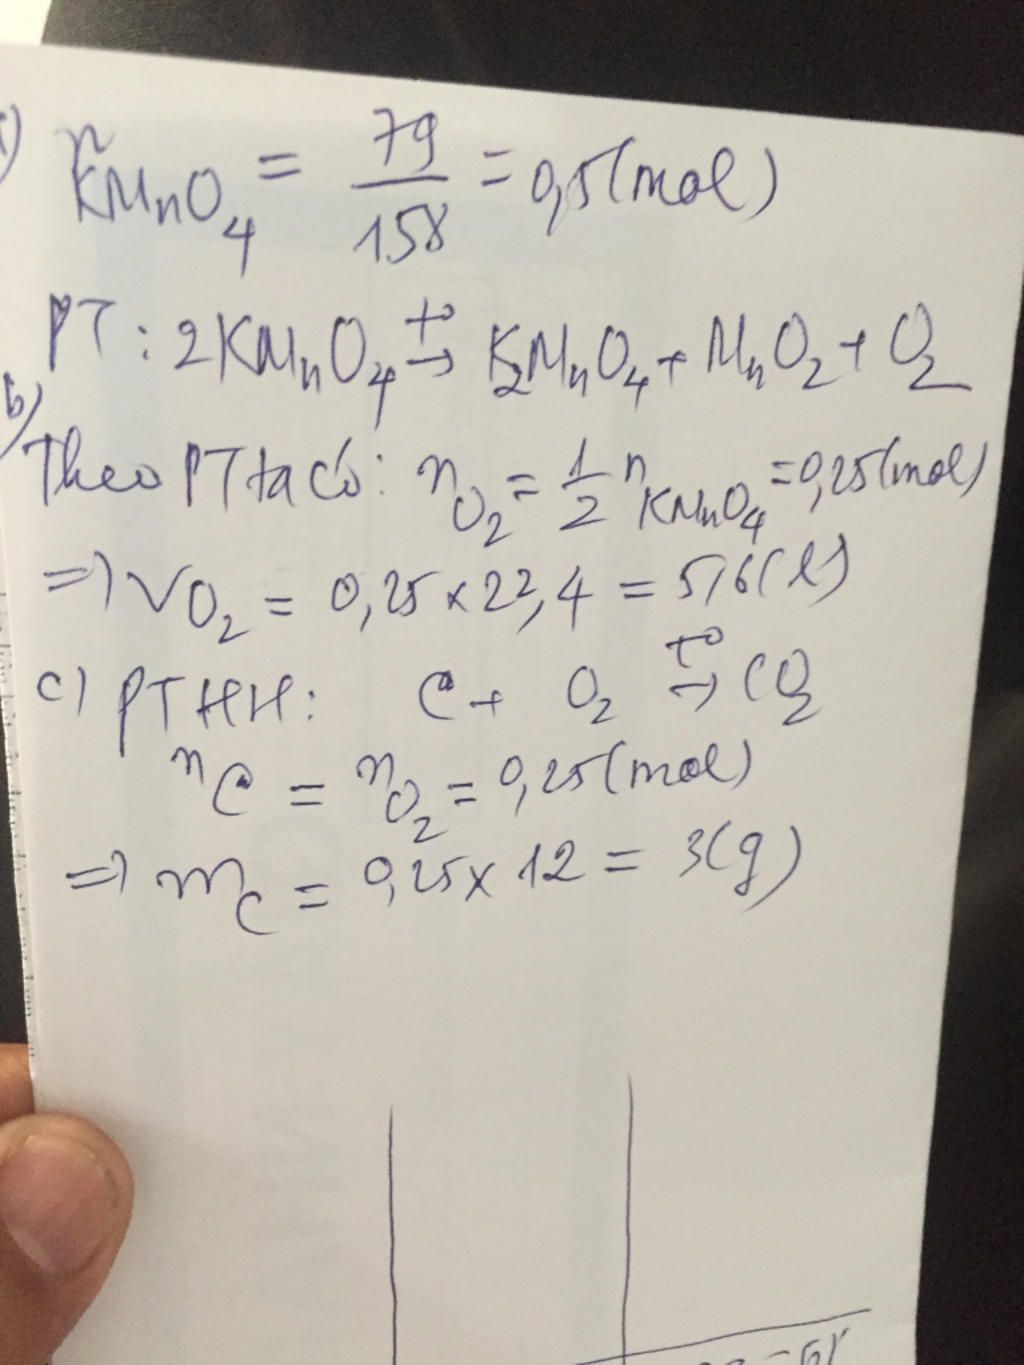 n KMnO4 = 79/158 = 0,5(mol)
PT: 2KMnO4 t° → K2MnO4 + MnO2 + O2
b)
Theo PT ta có: nO2 = 1/2 nKMnO4 = 0,25(mol)
=> VO2 = 0,25 x 22,4 = 5,6(l)
c) PTHH: C + O2 t° → CO2
nC = nO2 = 0,25(mol)
=> mC = 0,25 x 12 = 3(g)